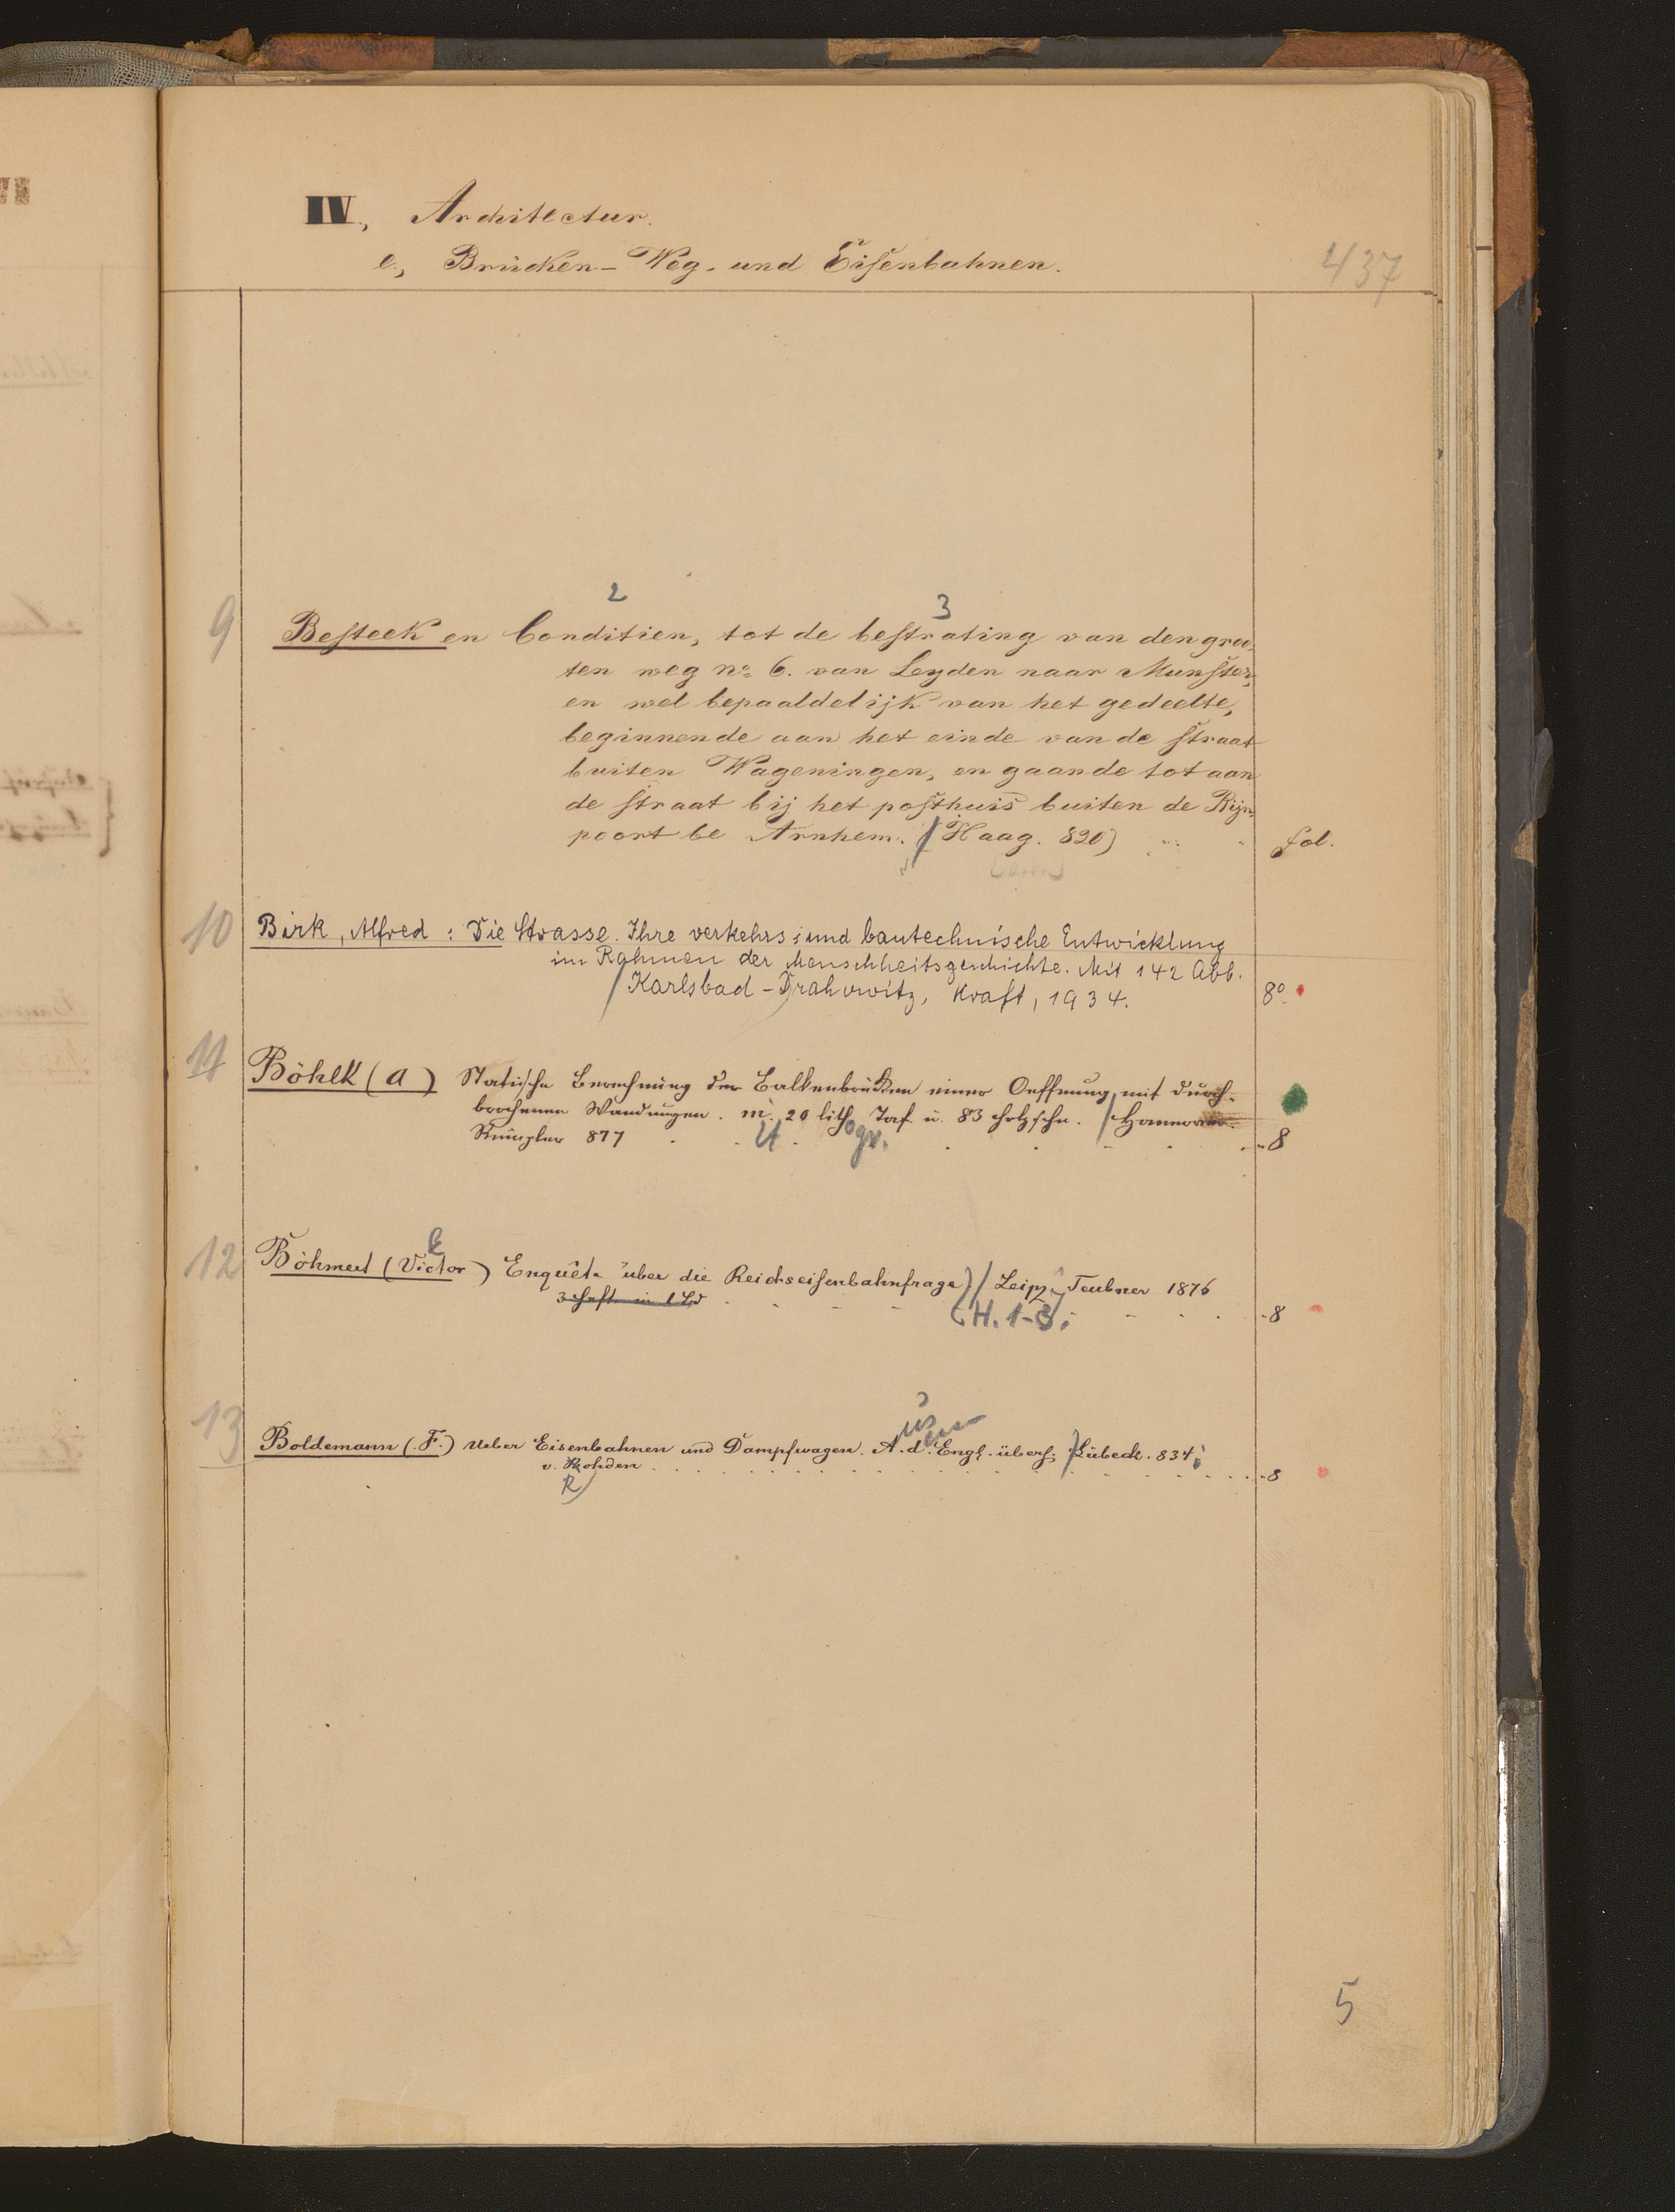 IV., Architectur.
e., Brücken- Weg- und Eisenbahnen.
437
2 3
9 Besteek en Conditien, tot de bestrating van den groo-
ten weg no 6. van Leyden naar Munster,
en wel bepaaldelijk van het gedeelte,
beginnende aan het einde van de straat
buiten Wageningen, en gaande tot aan
de straat bij het posthuis buiten de Rijn-
poort be Arnhem. / Haag. 820) fol.
10 Birk, Alfred: Die Strasse. Ihre verkehrs- und bautechnische Entwicklung
im Rahmen der Menschheitsgeschichte. Mit 142 Abb.
/ Karlsbad-Drahowitz, Kraft, 1934. 8°
11 Böhlk (A) Statische Berechnung der Balkenbrücken einer Oeffnung, mit durch-
brochenen Wandungen. m. 20 lith. Taf u. 83 Holzschn. / Hannover.
Künzler 877 8
ogr.
12 Böhmert (Victor) Enquête über die Reichseisenbahnfrage) / Leipz. Teubner 1876
k
3 Heft in 1 Bd (H. 1-3. 8
13 Boldemann (F.) Ueber Eisenbahnen und Dampfwagen. A. d. Engl. übers. / Lübeck. 834;
us dem
v. Rohden 8
R
5